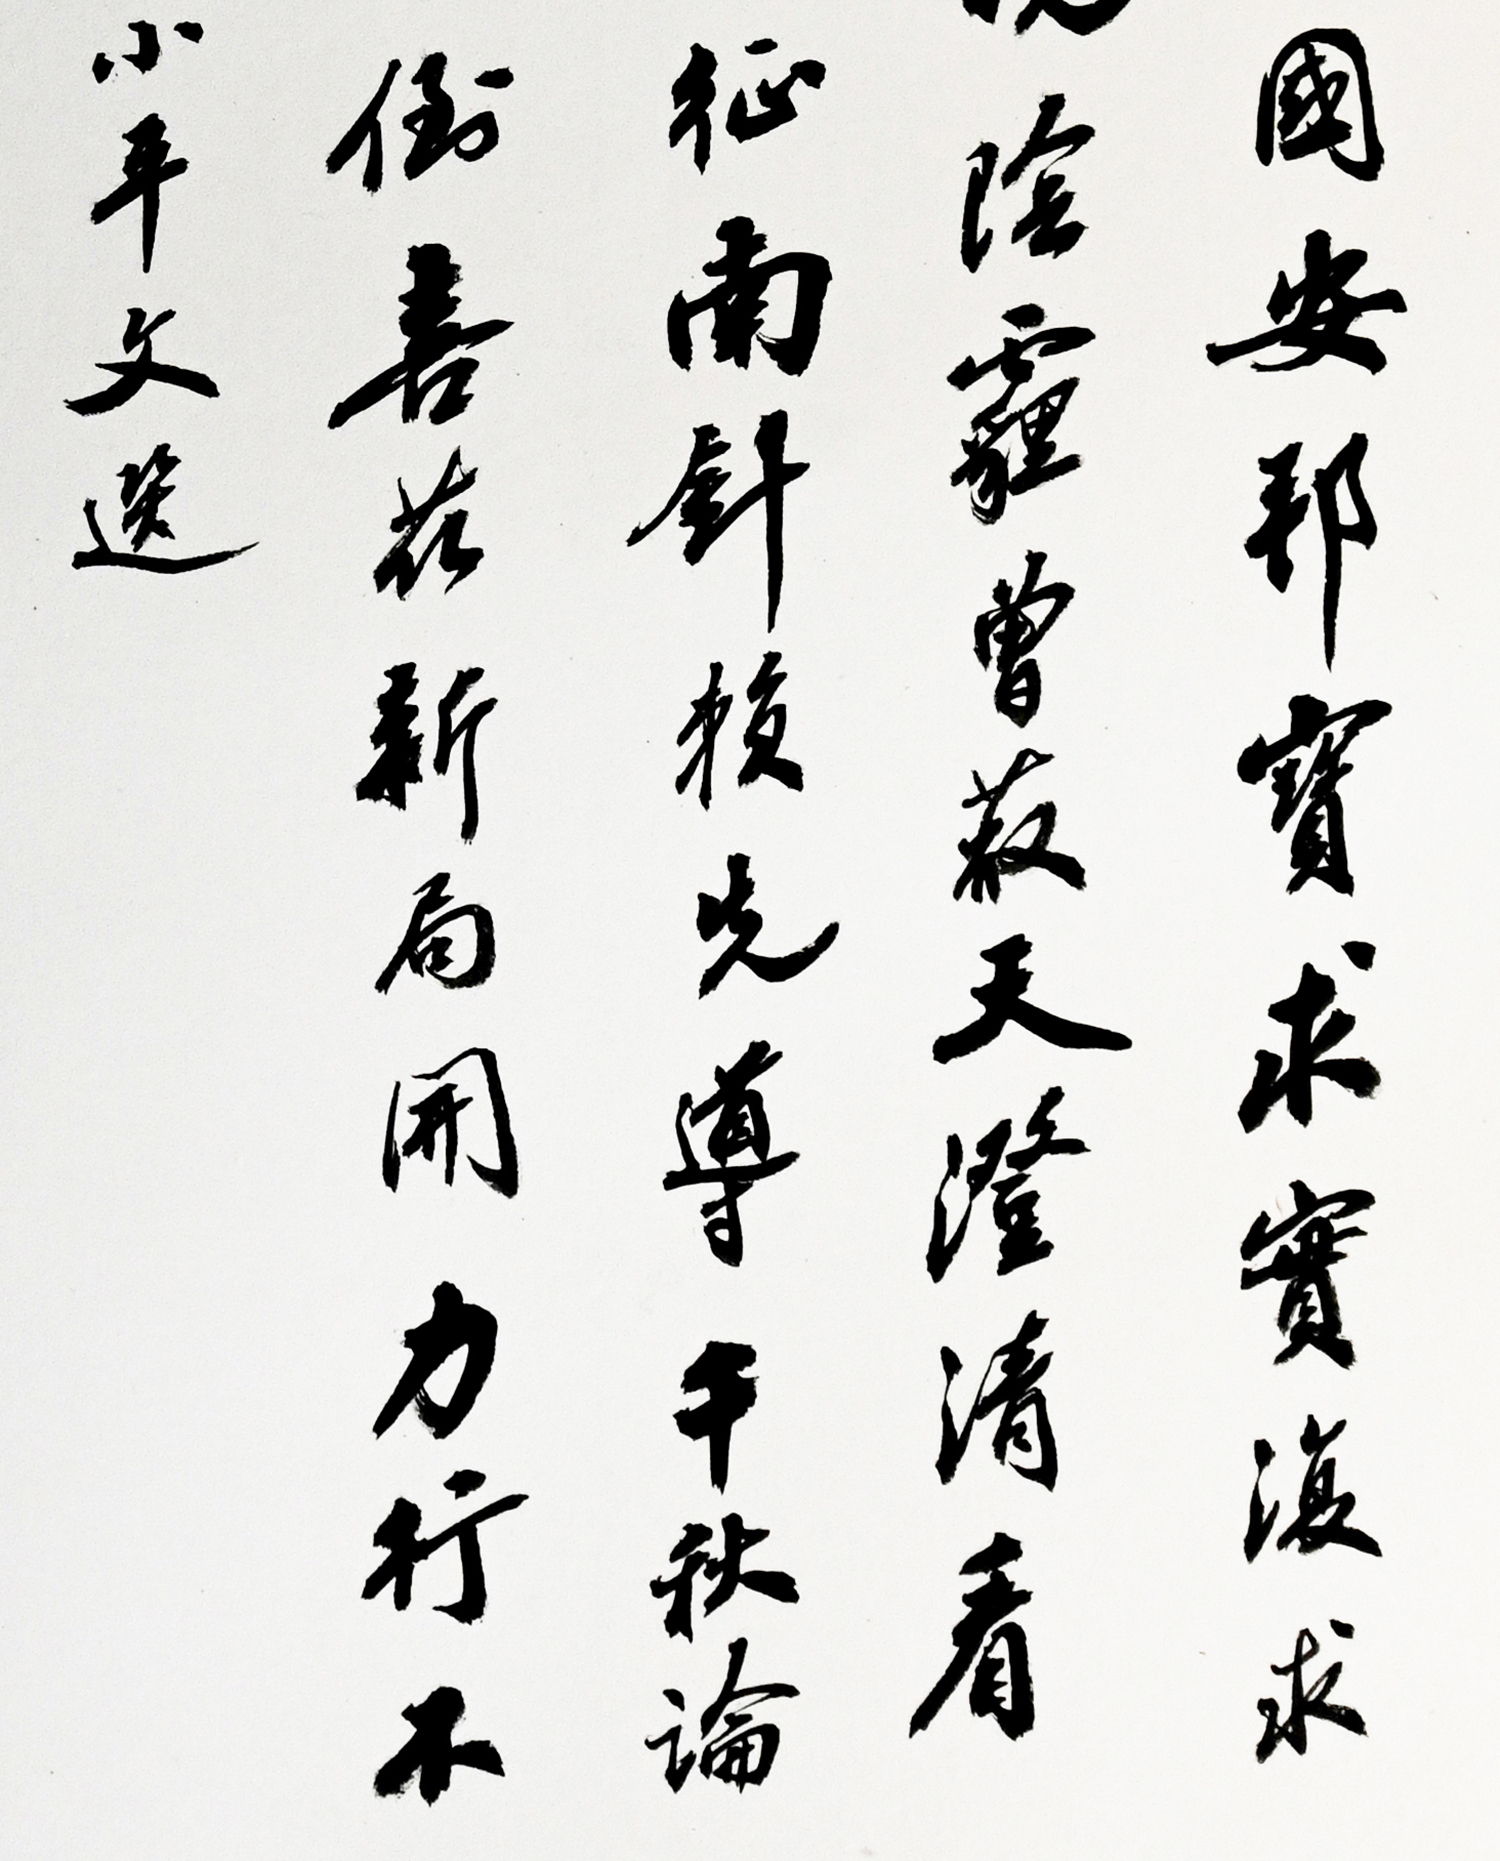 國安邦寶求實復求
陰霾曾蔽天澄清看
征南針賴先導千秋論
倒喜花新局開力行不
小平文選